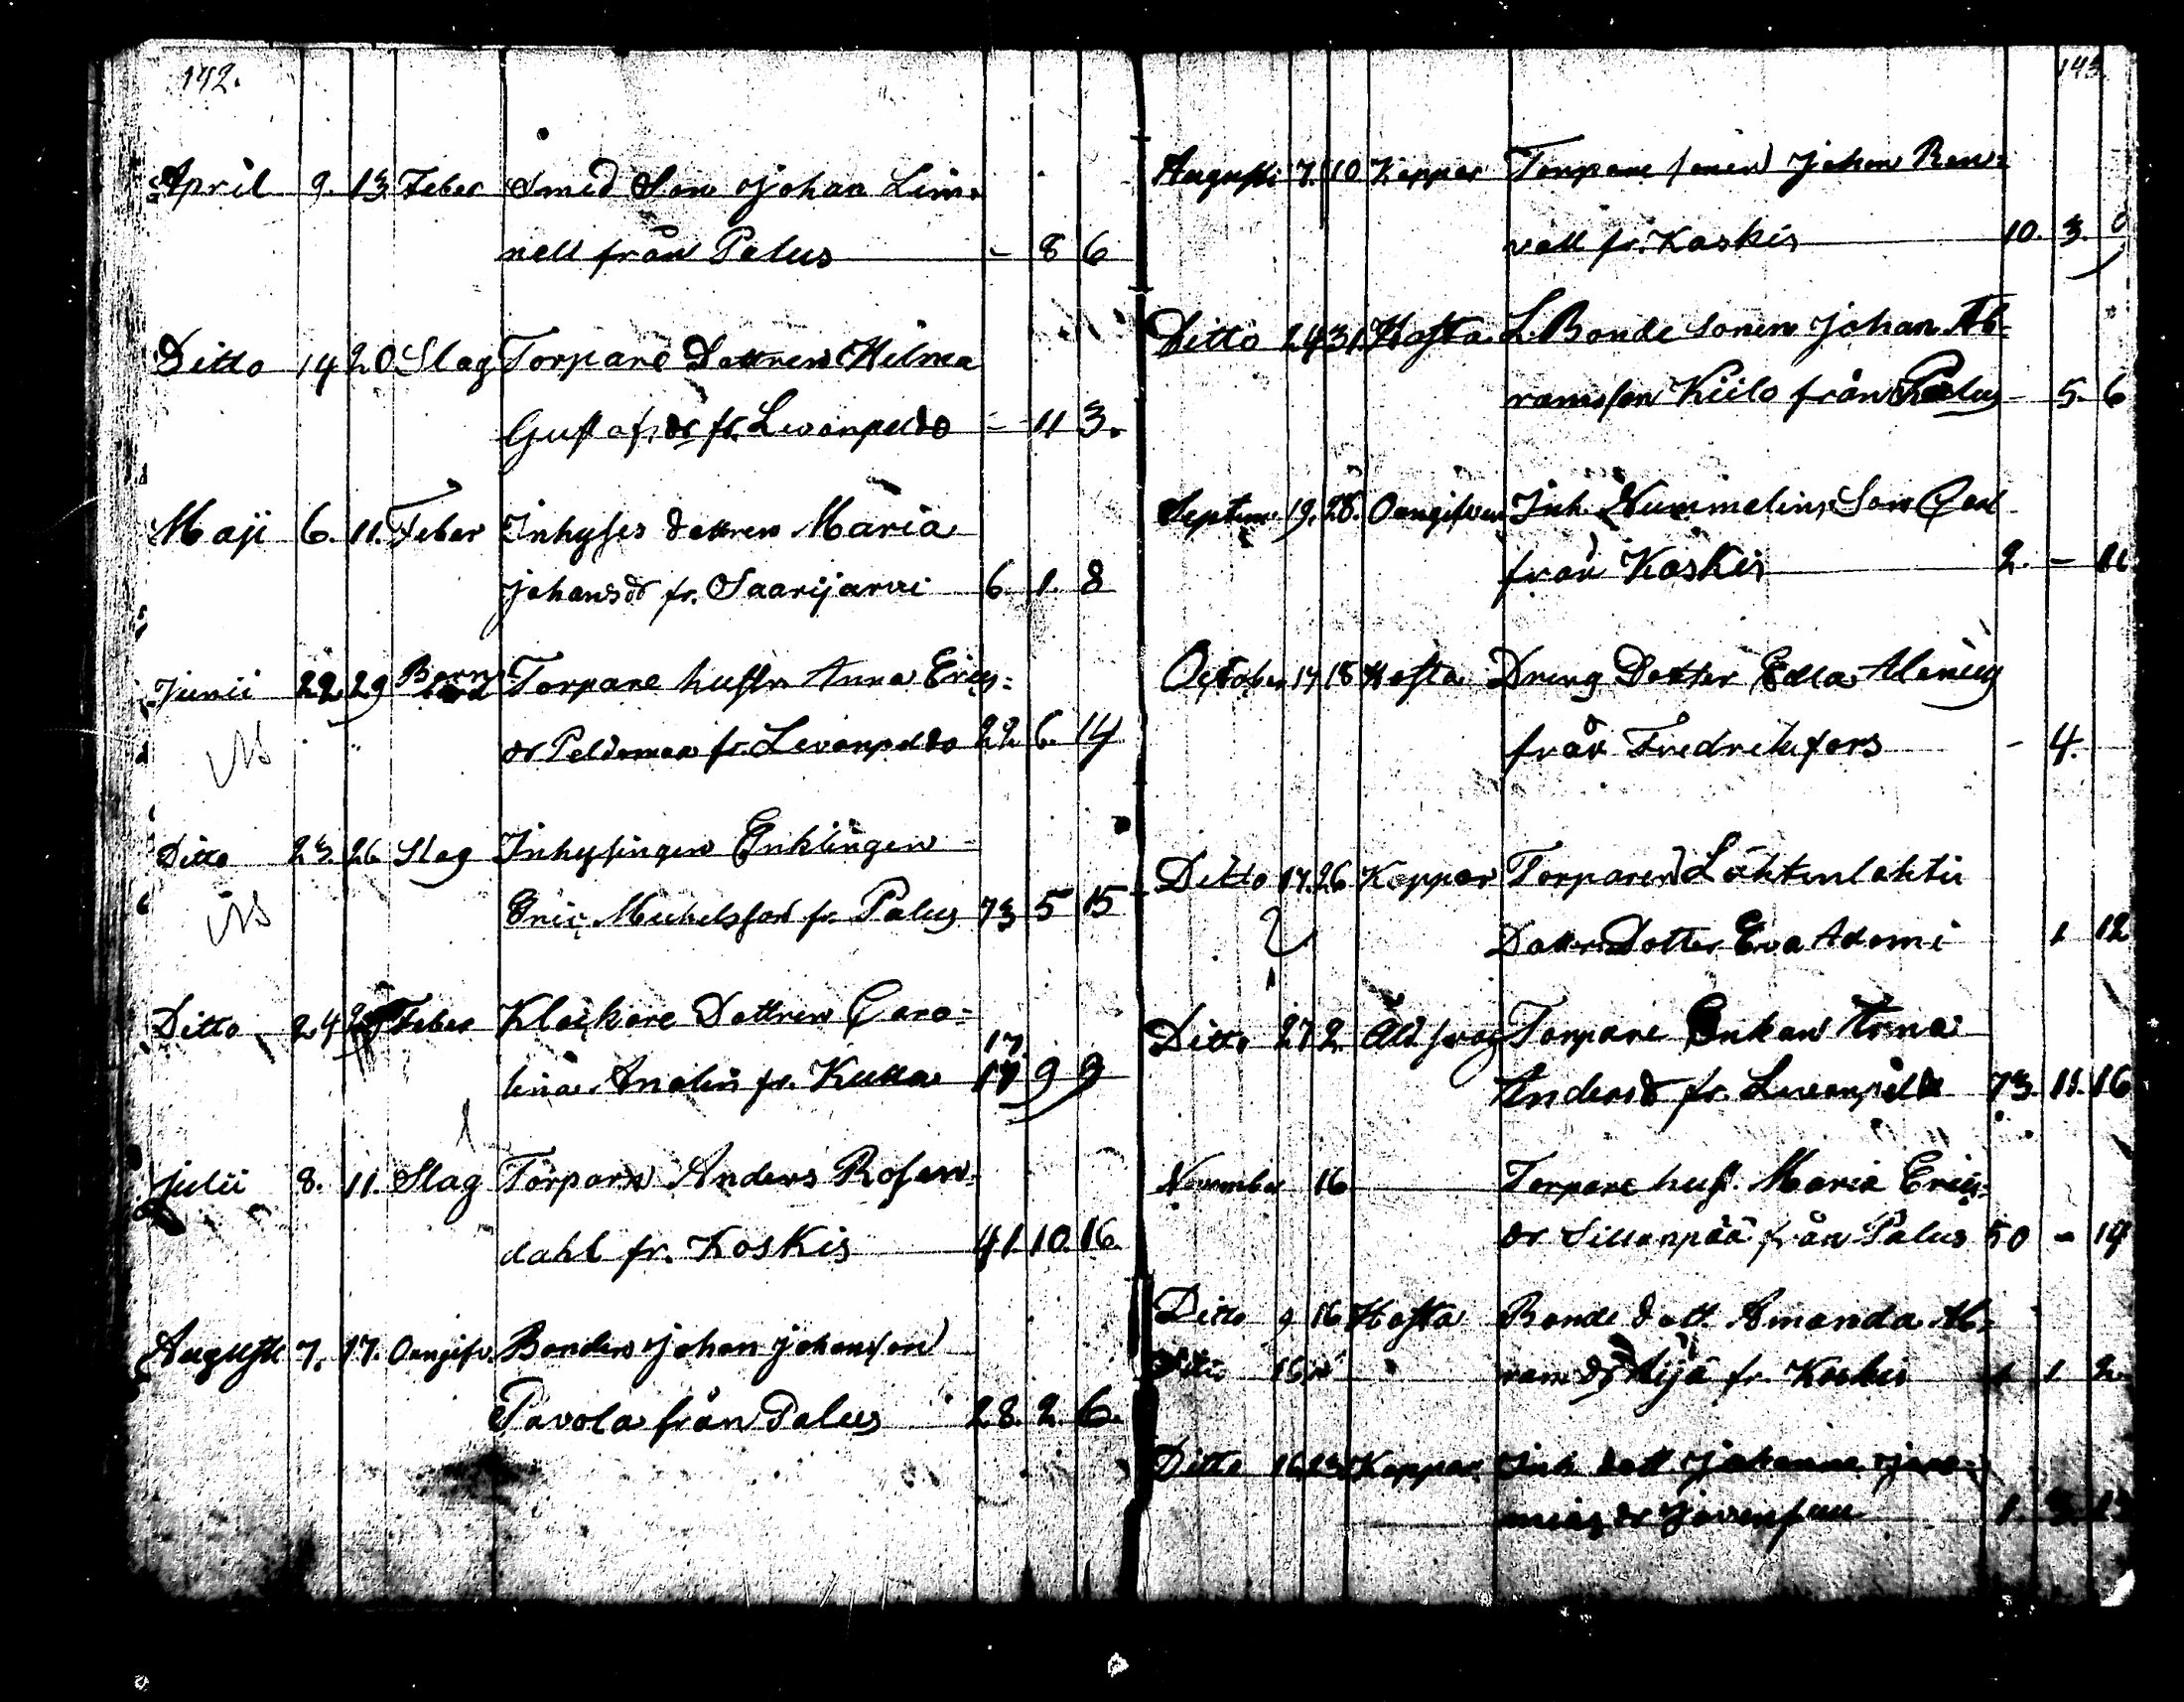 142.
April 9. 13. Feber Smed Son Johan Lin-
nell från Palus - 8 6
Ditto 14 20 Slag Torpare Dottren Hilma
Gustafsdr fr. Levanpeldo - 11 3.
Maji 6. 11. Feber Inhyses dottren Maria
Johansdr fr. Saarijarvi 6 1. 8
Junii 22 29 Barn Torpare hustr. Anna Erics=
dr Peldomaa fr. Levanpeldo 22. 6. 14
NB
Ditto 23. 26 Slag Inhysingen Enklingen
Eric Michelsson fr. Palus 73 5 15
NB
Ditto 24 Feber Klockare Dottren Caro=
17
lina Analin fr. Kulla 17 9 9
Julii 8. 11. Slag Torparn Anders Rosen-
dahl fr. Koskis 41. 10. 16.
Augusti 7. 17. Oangifv. Bonden Johan Johansson
Pavola från Palus 28. 2. 6.
143
Augusti 7. 10 Koppor Torpare sonen Johan Ren=
vall fr. Koskis 10. 3. 9
Ditto 24 31. Hosta L. Bonde sonen Johan Ab-
ramsson Kiilo från Palus - 5. 6
Septem 19. 28. Oangifven Inh. Nummelins Son Carl
från Koskis 2. - 11.
October 17 18 Hosta Dreng Dotter Edla Alenius
från Fredriksfors - 4.
Ditto 17. 26 Koppor Torparen Lähtenlahti
Dotters Dotter Eva Adami 1 12
Ditto 27 2. Ålds svag Torpare Enkan Anna
Andersdr fr. Levanpeldo 73. 11. 16
November 16 Torpare hust. Maria Erics-
dr Sillanpää från Palus 50 - 19
Ditto 9 16 Hosta Bonde dott. Amanda Ab-
Ditto 16 ramsdr Äijä fr. Koskis 1 1 2
Ditto 16 Koppor Inh dott Johanna Jere-
miasdr 1. 3. 13